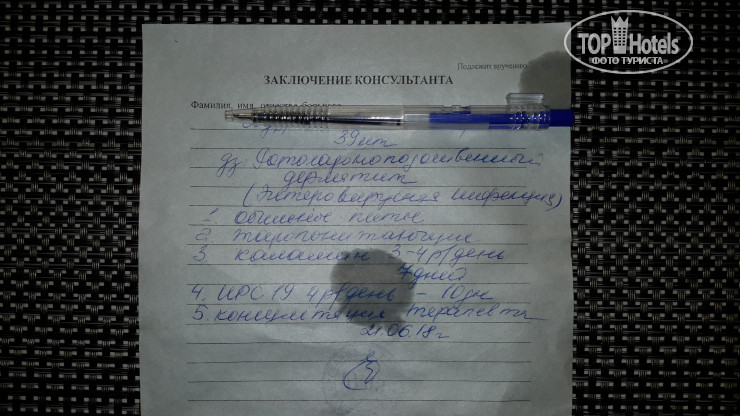 TOP Hotels
ФОТО ТУРИСТА
Подлежит вручению
ЗАКЛЮЧЕНИЕ КОНСУЛЬТАНТА
Фамилия, имя, отчество больного
39 лет
дз
дерматит
(Энтеровирусная инфекция)
1. обильное питье
2. жаропонижающие
3. каламан 3-4 р/день
7 дней
4. ИРС 19 4 р/день - 10 дн
5. консультация терапевта
21.06.18 г